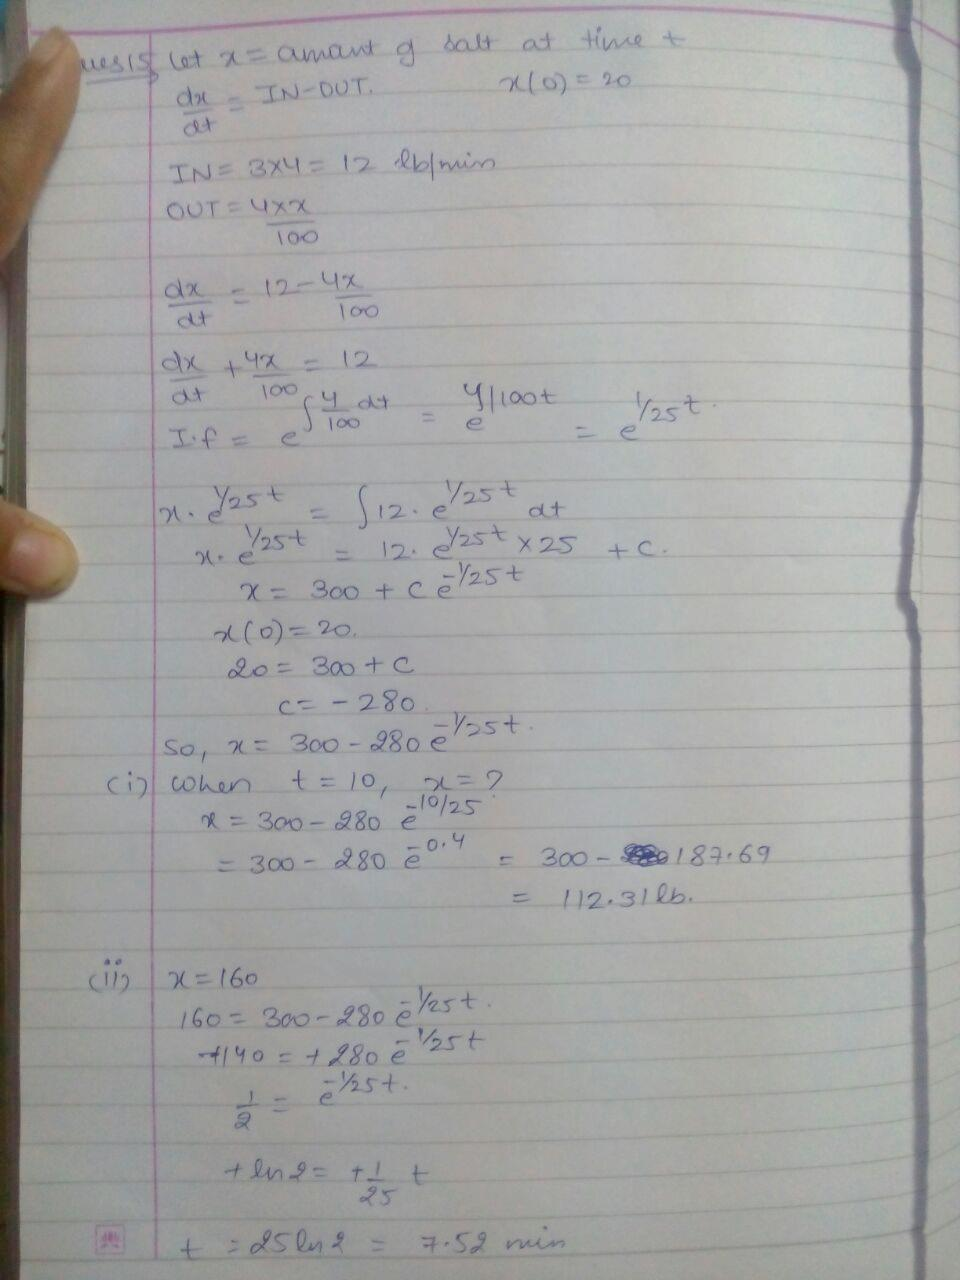 Ques15 Let x = amant of salt at time t
dx/dt = IN-OUT. x(0) = 20
IN = 3x4 = 12 lb/min
OUT = 4xx/100
dx/dt = 12 - 4x/100
dx/dt + 4x/100 = 12
I.f = e^∫4/100 dt = e^4/100t = e^1/25t.
x. e^1/25t = ∫12. e^1/25t dt
x. e^1/25t = 12. e^1/25t x 25 + c.
x = 300 + c e^-1/25t
x(0) = 20.
20 = 300 + c
c = -280.
So, x = 300 - 280 e^-1/25t.
(i) when t = 10, x = ?
x = 300 - 280 e^-10/25
= 300 - 280 e^-0.4 = 300 - 187.69
= 112.31 lb.
(ii) x = 160
160 = 300 - 280 e^-1/25t.
+140 = +280 e^-1/25t
1/2 = e^-1/25t.
+ln2 = +1/25 t
t = 25 ln2 = 7.52 min